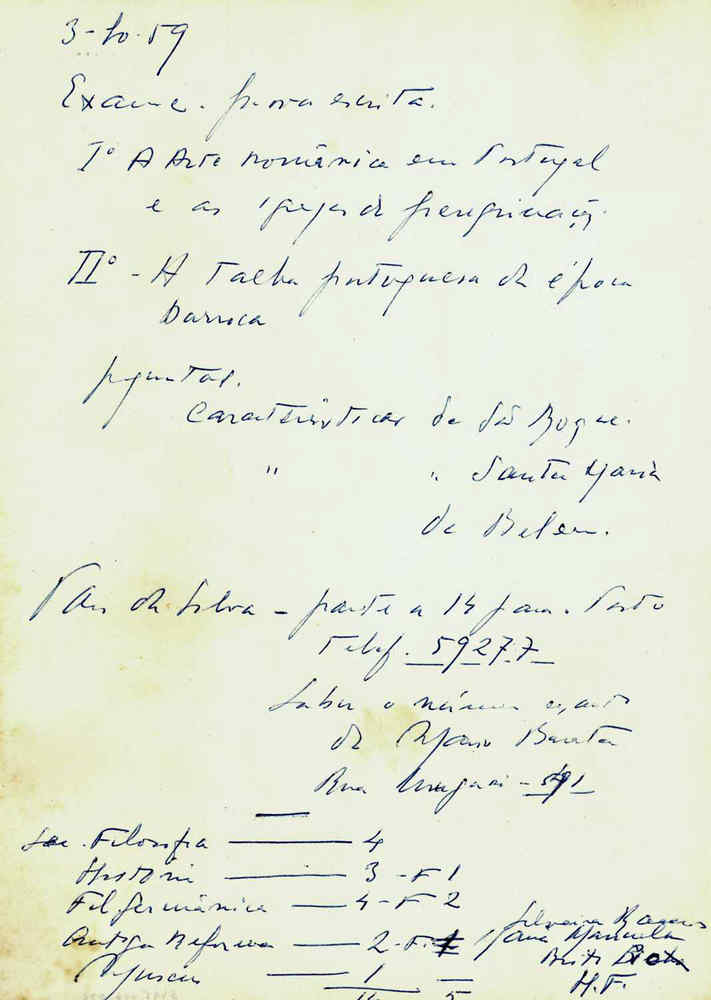 3-10-59
Exame. prova escrita.
Iº A Arte românica em Portugal
e as igrejas de peregrinação.
IIº - A talha portuguesa da época
barroca
perguntas.
Características de São Roque.
" " Santa Maria
de Belem.
da Silva - parte a 14 para Porto
Telef. 59277
Saber o número exacto
de Barata
Rua - 591
Sec. Filosofia —— 4
História —— 3 - F 1
Fil. germânica — 4 - F 2
Antiga Reforma —— 2 - F.
Silveira Ramos
Maria Manuela
Brito
H.F.
—— 1
11 5